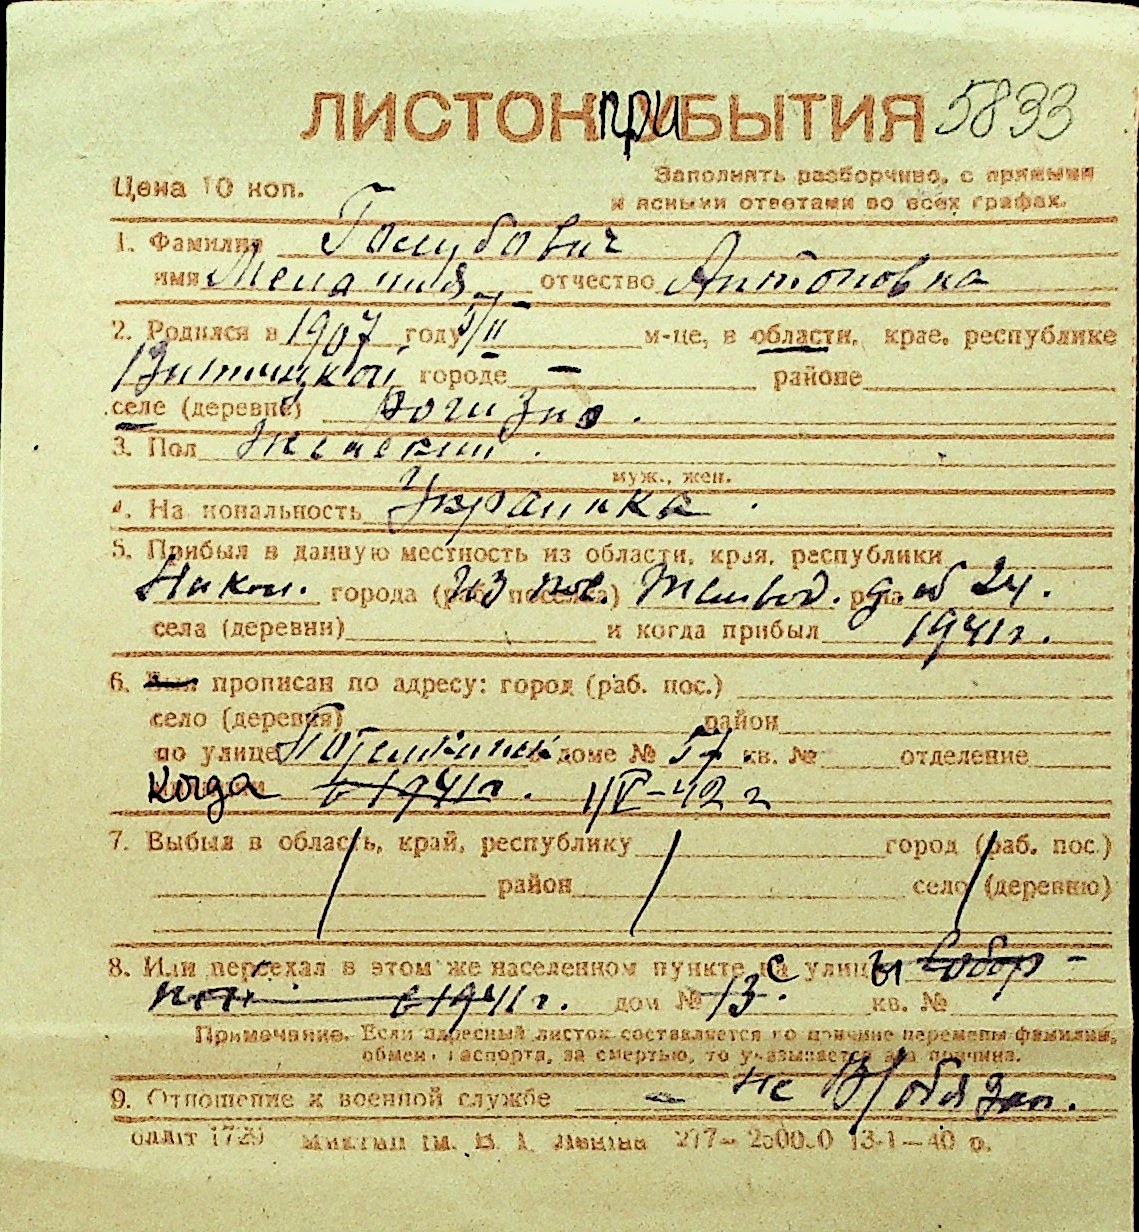 ЛИСТОК ПРИБЫТИЯ 5833
Цена 10 коп.
Заполнять разборчиво, с прямыми
и ясными ответами во всех графах.
1. Фамилия Голубович
имя Мелания отчество Антоновна
2. Родился в 1907 году 5/II м-це, в области, крае, республике
городе — районе
селе (деревне)
3. Пол Женский.
муж., жен.
4. Национальность Украинка.
5. Прибыл в данную местность из области, края, республики
Никол. города (раб. поселка) из пос. д. об 24.
села (деревни) и когда прибыл 1941 г.
6. прописан по адресу: город (раб. пос.)
село (деревня) район
по улице Потемкинск доме № 57 кв. № отделение
когда в 1941 г. 1/IV-42 г
7. Выбыл в область, край, республику город (раб. пос.)
район село (деревню)
8. Или переехал в этом же населенном пункте с улицы Собор-
ной в 1941 г. дом № 13. кв. №
Примечание. Если адресный листок составляется по причине перемены фамилии,
обмена паспорта, за смертью, то указывается эта причина.
9. Отношение к военной службе — не в/обязан.
облит 1729 Миктип им. В. И. Ленина 277—25000 13-1—40 р.